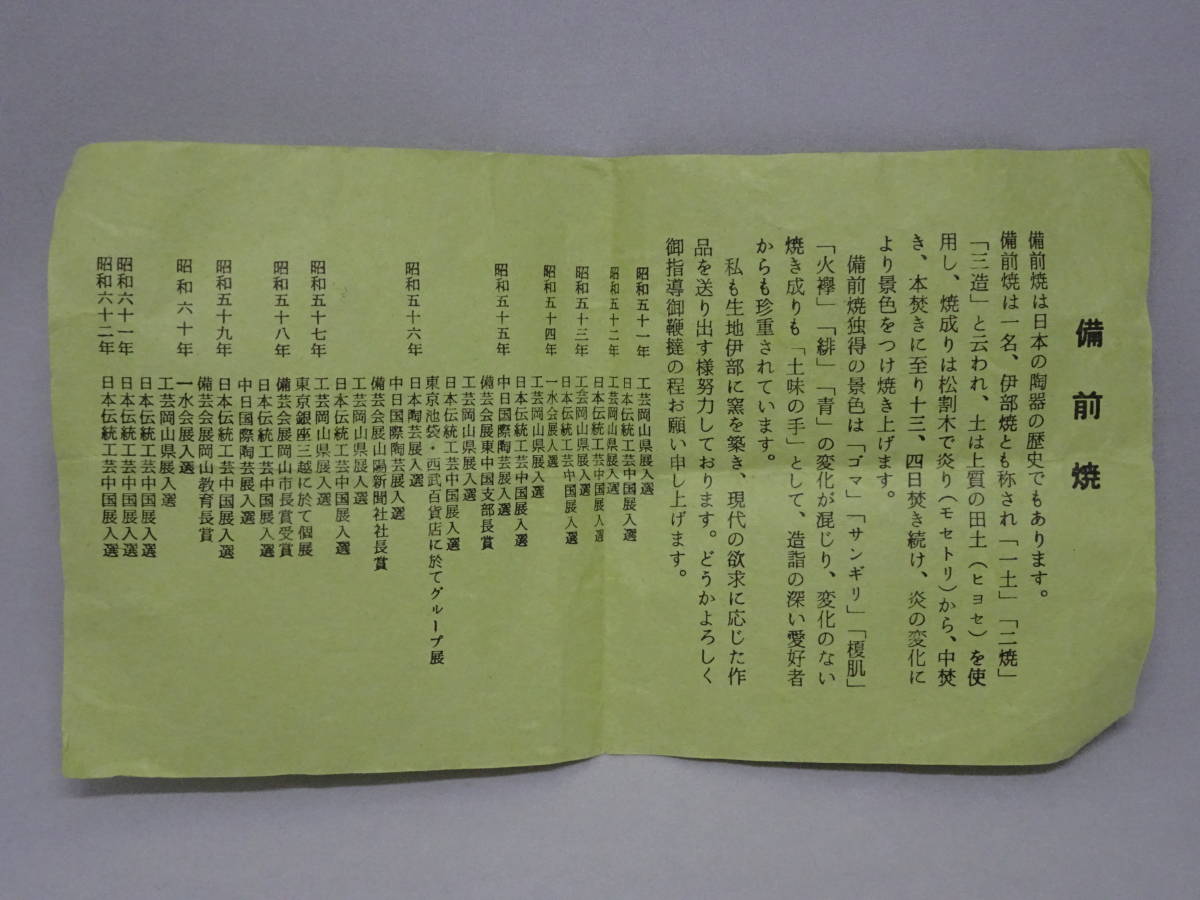 備前焼
備前焼は日本の陶器の歴史でもあります。
備前焼は一名、伊部焼とも称され「一土」「二焼」
「三造」と云われ、土は上質の田土（ヒヨセ）を使
用し、焼成りは松割木で炎り（モセトリ）から、中焚
き、本焚きに至り十三、四日焚き続け、炎の変化に
より景色をつけ焼き上げます。
備前焼独得の景色は「ゴマ」「サンギリ」「榎肌」
「火襷」「緋」「青」の変化が混じり、変化のない
焼き成りも「土味の手」として、造詣の深い愛好者
からも珍重されています。
私も生地伊部に窯を築き、現代の欲求に応じた作
品を送り出す様努力しております。どうかよろしく
御指導御鞭撻の程お願い申し上げます。
昭和五十一年 工芸岡山県展入選
日本伝統工芸中国展入選
昭和五十二年 工芸岡山県展入選
日本伝統工芸中国展入選
昭和五十三年 工芸岡山県展入選
日本伝統工芸中国展入選
昭和五十四年 一水会展入選
工芸岡山県展入選
日本伝統工芸中国展入選
昭和五十五年 中日国際陶芸展入選
備芸会展東中国支部長賞
工芸岡山県展入選
日本伝統工芸中国展入選
東京池袋・西武百貨店に於てグループ展
昭和五十六年 日本陶芸展入選
中日国際陶芸展入選
備芸会展山陽新聞社社長賞
工芸岡山県展入選
日本伝統工芸中国展入選
昭和五十七年 工芸岡山県展入選
東京銀座三越に於て個展
昭和五十八年 備芸会展岡山市長賞受賞
日本伝統工芸中国展入選
中日国際陶芸展入選
昭和五十九年 日本伝統工芸中国展入選
備芸会展岡山教育長賞
昭和六十年 一水会展入選
工芸岡山県展入選
日本伝統工芸中国展入選
昭和六十一年 日本伝統工芸中国展入選
昭和六十二年 日本伝統工芸中国展入選